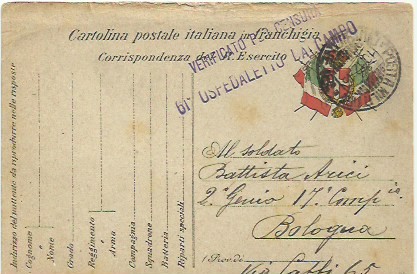 Cartolina postale italiana in franchigia
Corrispondenza del R. Esercito
VERIFICATO PER CENSURA
61° OSPEDALETTO DA CAMPO
Indirizzo del mittente da riprodurre nelle risposte
Cognome e Nome
Grado
Reggimento e Arma
Compagnia
Squadrone
Batteria
Riparti speciali
Al soldato
Battista Arici
2° Genio 17ª Comp
Bologna
(Prov. di
Via